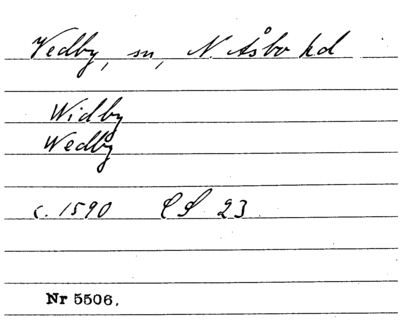 Vedby, sn, N. Åsbo hd
Widby
Wedby
c. 1590 LS 23
Nr 5506.